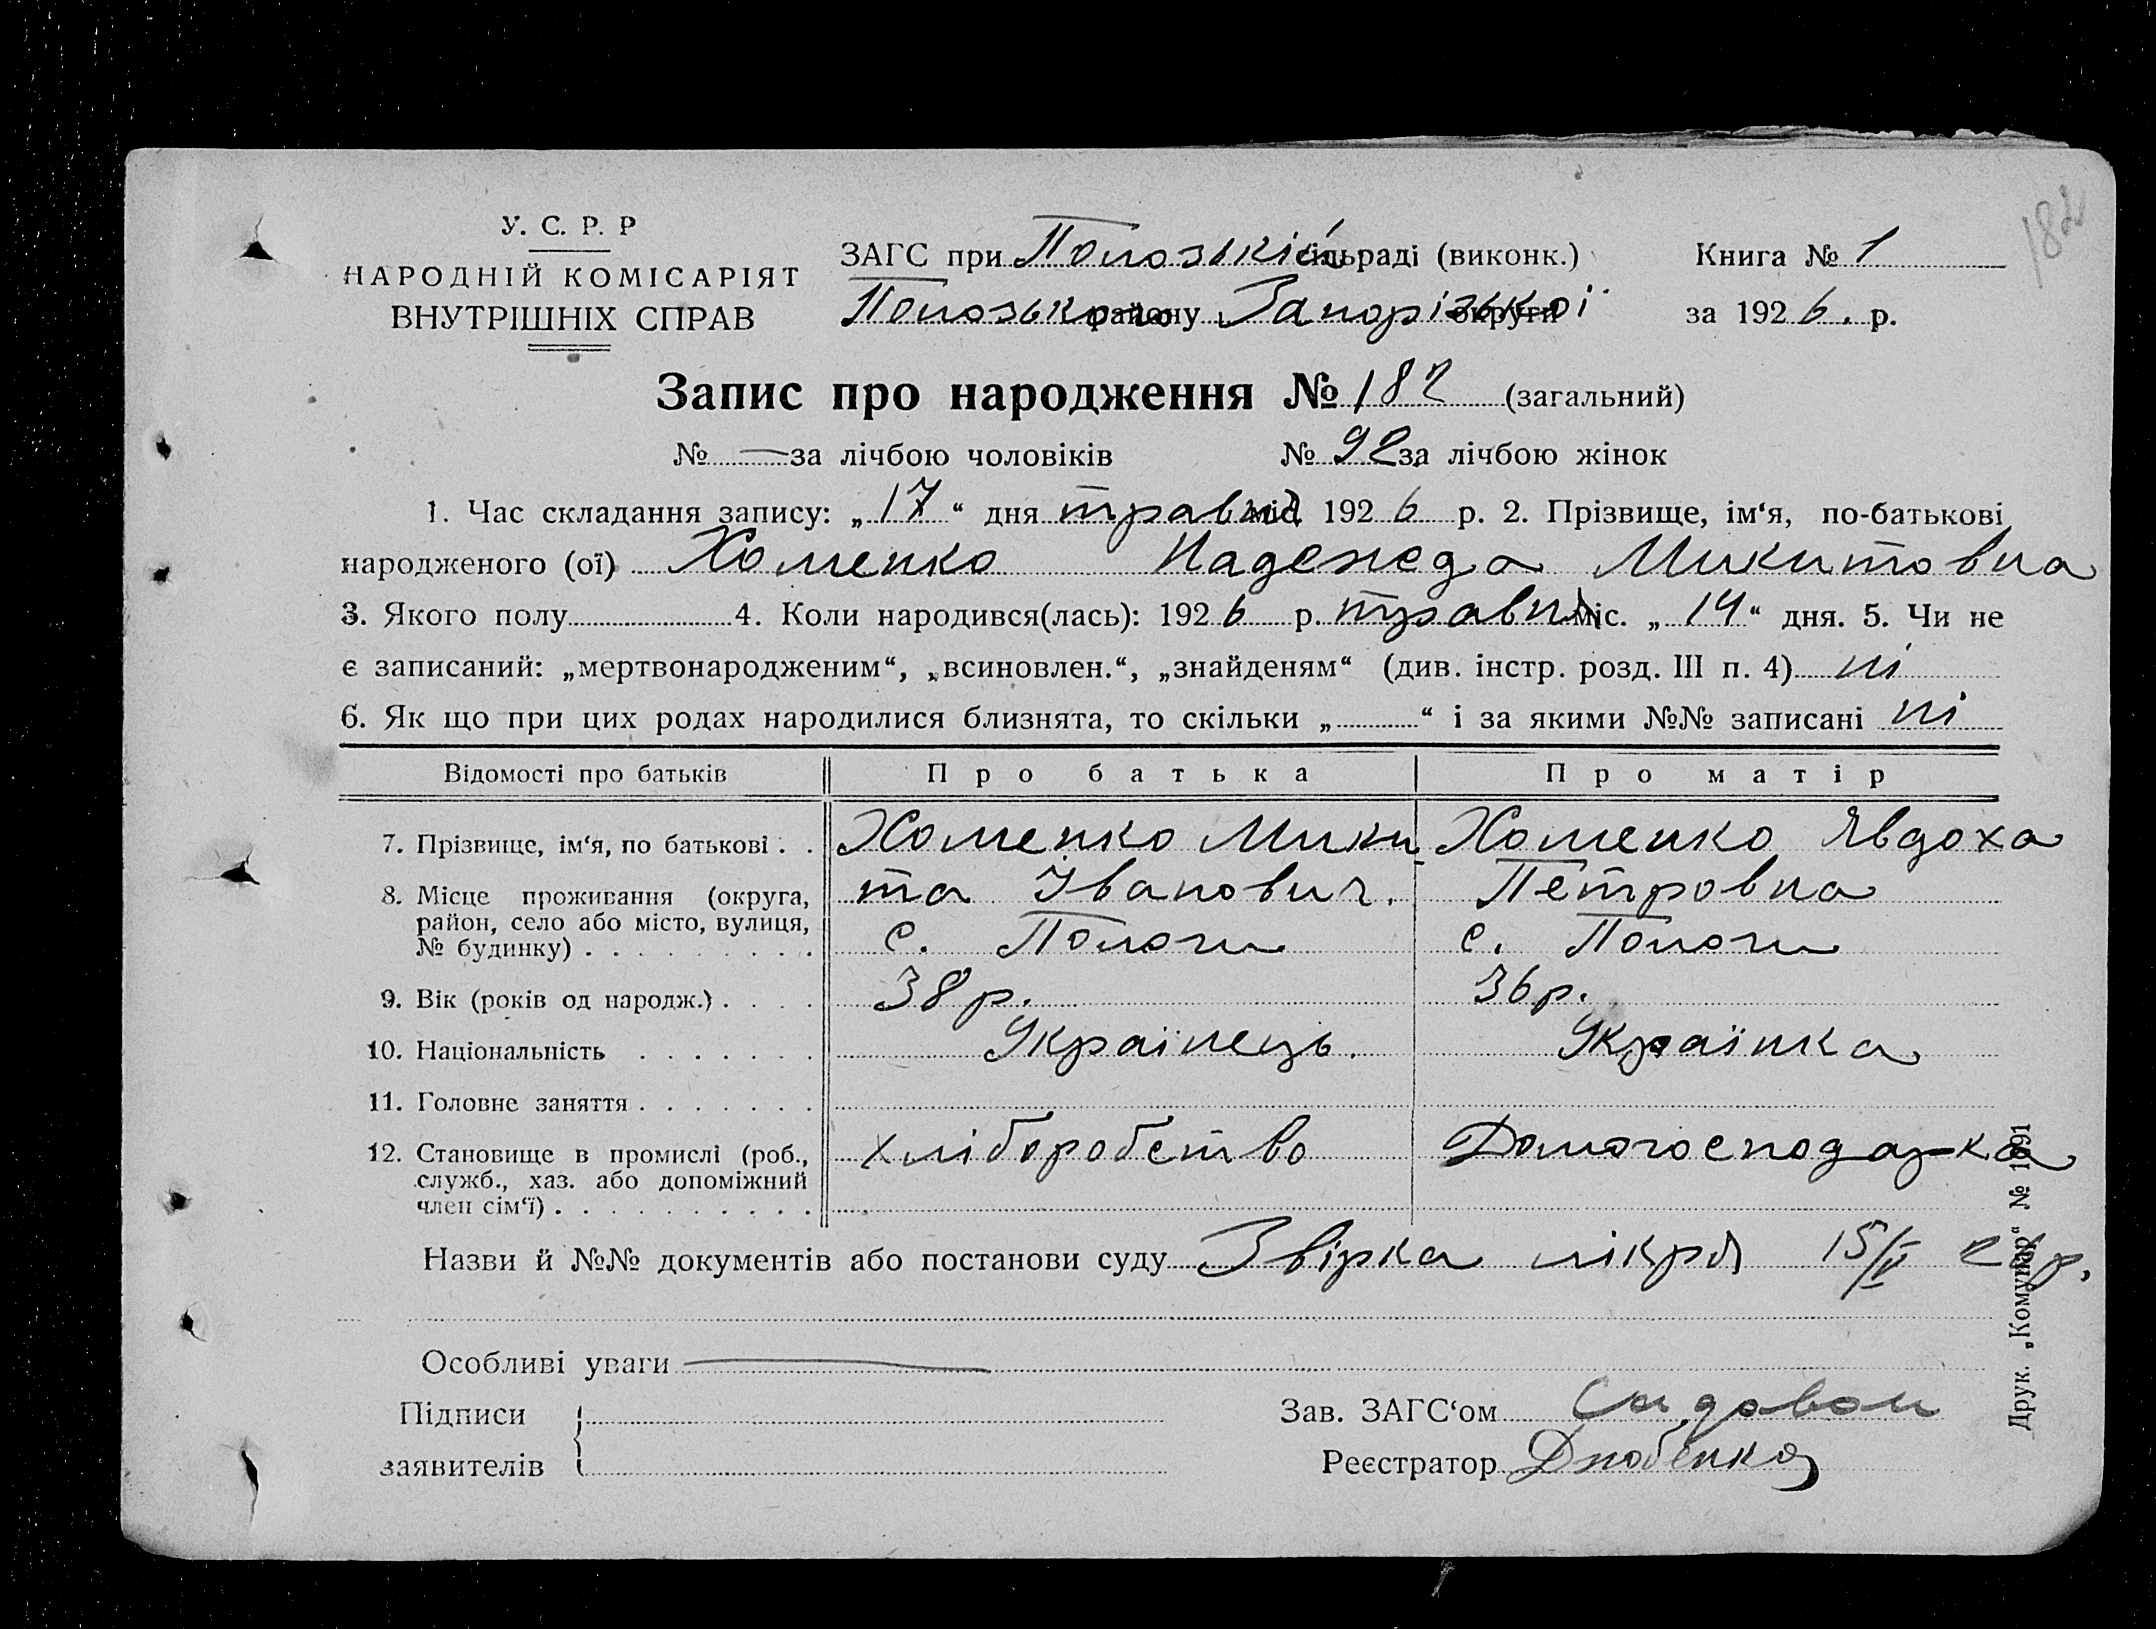 182
У. С. Р. Р
НАРОДНІЙ КОМІСАРІЯТ
ВНУТРІШНІХ СПРАВ
ЗАГС при Полозькій сільраді (виконк.)
Полозького району Запорізької округи
Книга № 1
за 1926. р.
Запис про народження № 182 (загальний)
№ — за лічбою чоловіків № 92 за лічбою жінок
1. Час складання запису: „17“ дня травня міс. 1926 р. 2. Прізвище, ім‘я, по-батькові
народженого (ої) Хоменко Надежда Микитовна
3. Якого полу 4. Коли народився(лась): 1926 р. травня міс. „14“ дня. 5. Чи не
є записаний: „мертвонародженим“, „всиновлен.“, „знайденям“ (див. інстр. розд. III п. 4) ні
6. Як що при цих родах народилися близнята, то скільки „ “ і за якими №№ записані ні
Відомості про батьків Про батька Про матір
7. Прізвище, ім‘я, по батькові . . Хоменко Мики Хоменко Явдоха
та Іванович. Петровна
8. Місце проживання (округа,
район, село або місто, вулиця,
№ будинку) . . . . . . . . . с. Пологи с. Пологи
9. Вік (років од народж.) . . . . 38 р. 36 р.
10. Національність . . . . . . . Українець. Українка
11. Головне заняття . . . . . . .
12. Становище в промислі (роб.,
служб., хаз. або допоміжний
член сім‘ї) . . . . . . . . . . хліборобство Домогосподарка
Назви й №№ документів або постанови суду Звірка лікря 15/V с/р.
Особливі уваги
Підписи
заявителів
Зав. ЗАГС‘ом
Реєстратор
Друк. „Комунар“ № 1091